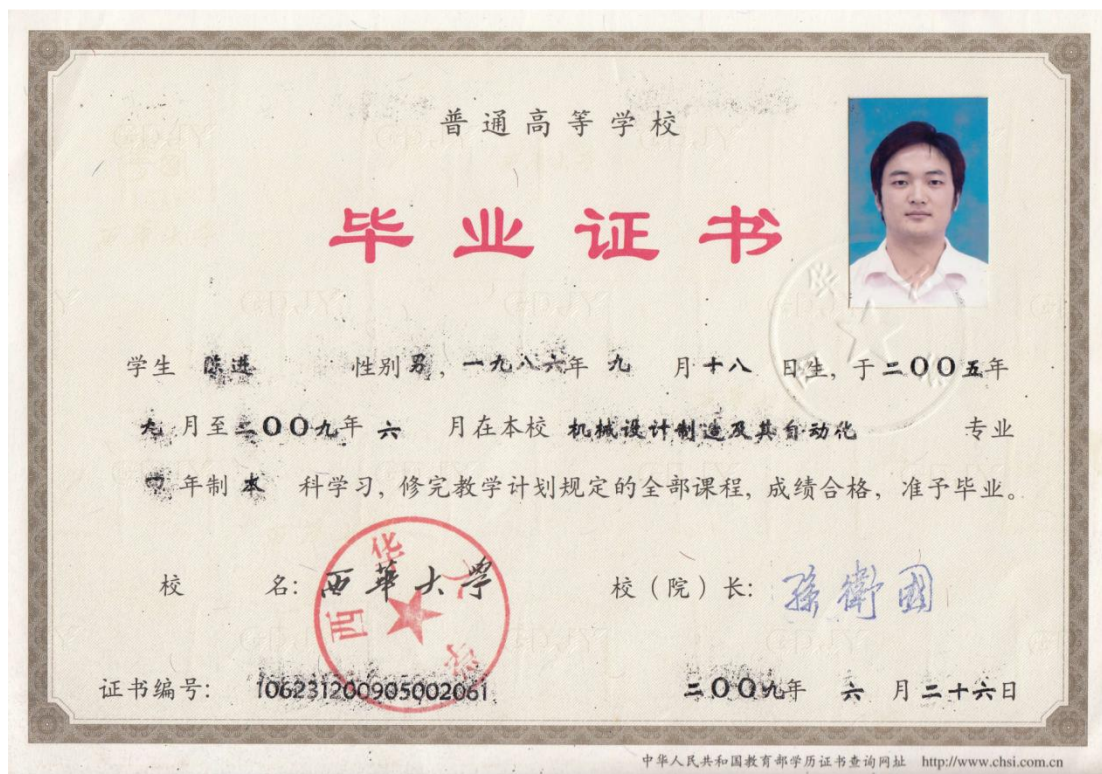 普通高等学校
毕业证书
学生 陈进 性别男，一九八六年 九 月十八 日生，于二〇〇五年
九 月至二〇〇九年 六 月在本校 机械设计制造及其自动化 专业
年制 本 科学习，修完教学计划规定的全部课程，成绩合格，准予毕业。
校 名：西華大学 校（院）长：孫衛國
西华大学
证书编号：106231200905002061 二〇〇九年 六 月二十六日
中华人民共和国教育部学历证书查询网址 http://www.chsi.com.cn